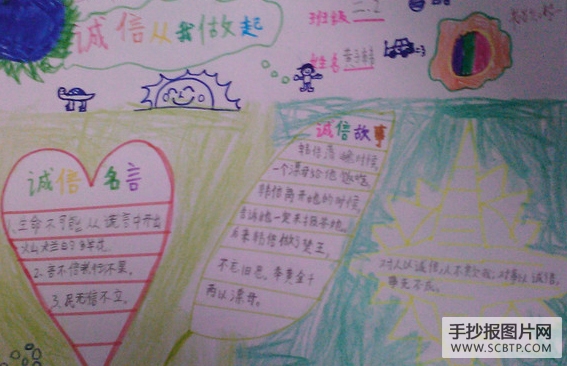 诚信从我做起
班级 二.2
姓名
诚信名言
1.生命不可能从谎言中开出
灿烂的鲜花。
2.言不信者行不果。
3.民无信不立。
诚信故事
韩信落魄时候
一个漂母给他饭吃,
韩信离开她的时候,
告诉她一定来报答她。
后来韩信做了楚王,
不忘旧恩,拿黄金千
两以漂母。
对人以诚信,人不欺我;对事以诚信,
事无不成。
手抄报图片网
WWW.SCBTP.COM